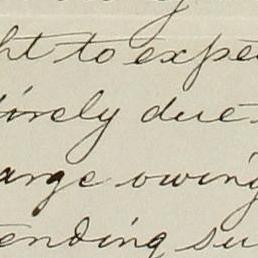 ht to expe
tirely due
arge owing
ending su